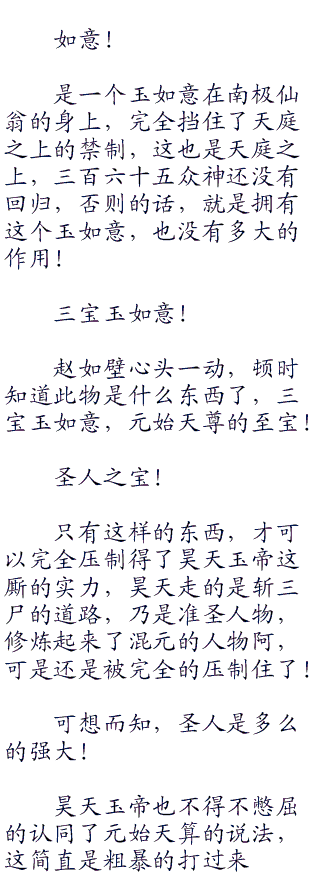 如意！
是一个玉如意在南极仙
翁的身上，完全挡住了天庭
之上的禁制，这也是天庭之
上，三百六十五众神还没有
回归，否则的话，就是拥有
这个玉如意，也没有多大的
作用！
三宝玉如意！
赵如壁心头一动，顿时
知道此物是什么东西了，三
宝玉如意，元始天尊的至宝！
圣人之宝！
只有这样的东西，才可
以完全压制得了昊天玉帝这
厮的实力，昊天走的是斩三
尸的道路，乃是准圣人物，
修炼起来了混元的人物阿，
可是还是被完全的压制住了！
可想而知，圣人是多么
的强大！
昊天玉帝也不得不憋屈
的认同了元始天算的说法，
这简直是粗暴的打过来